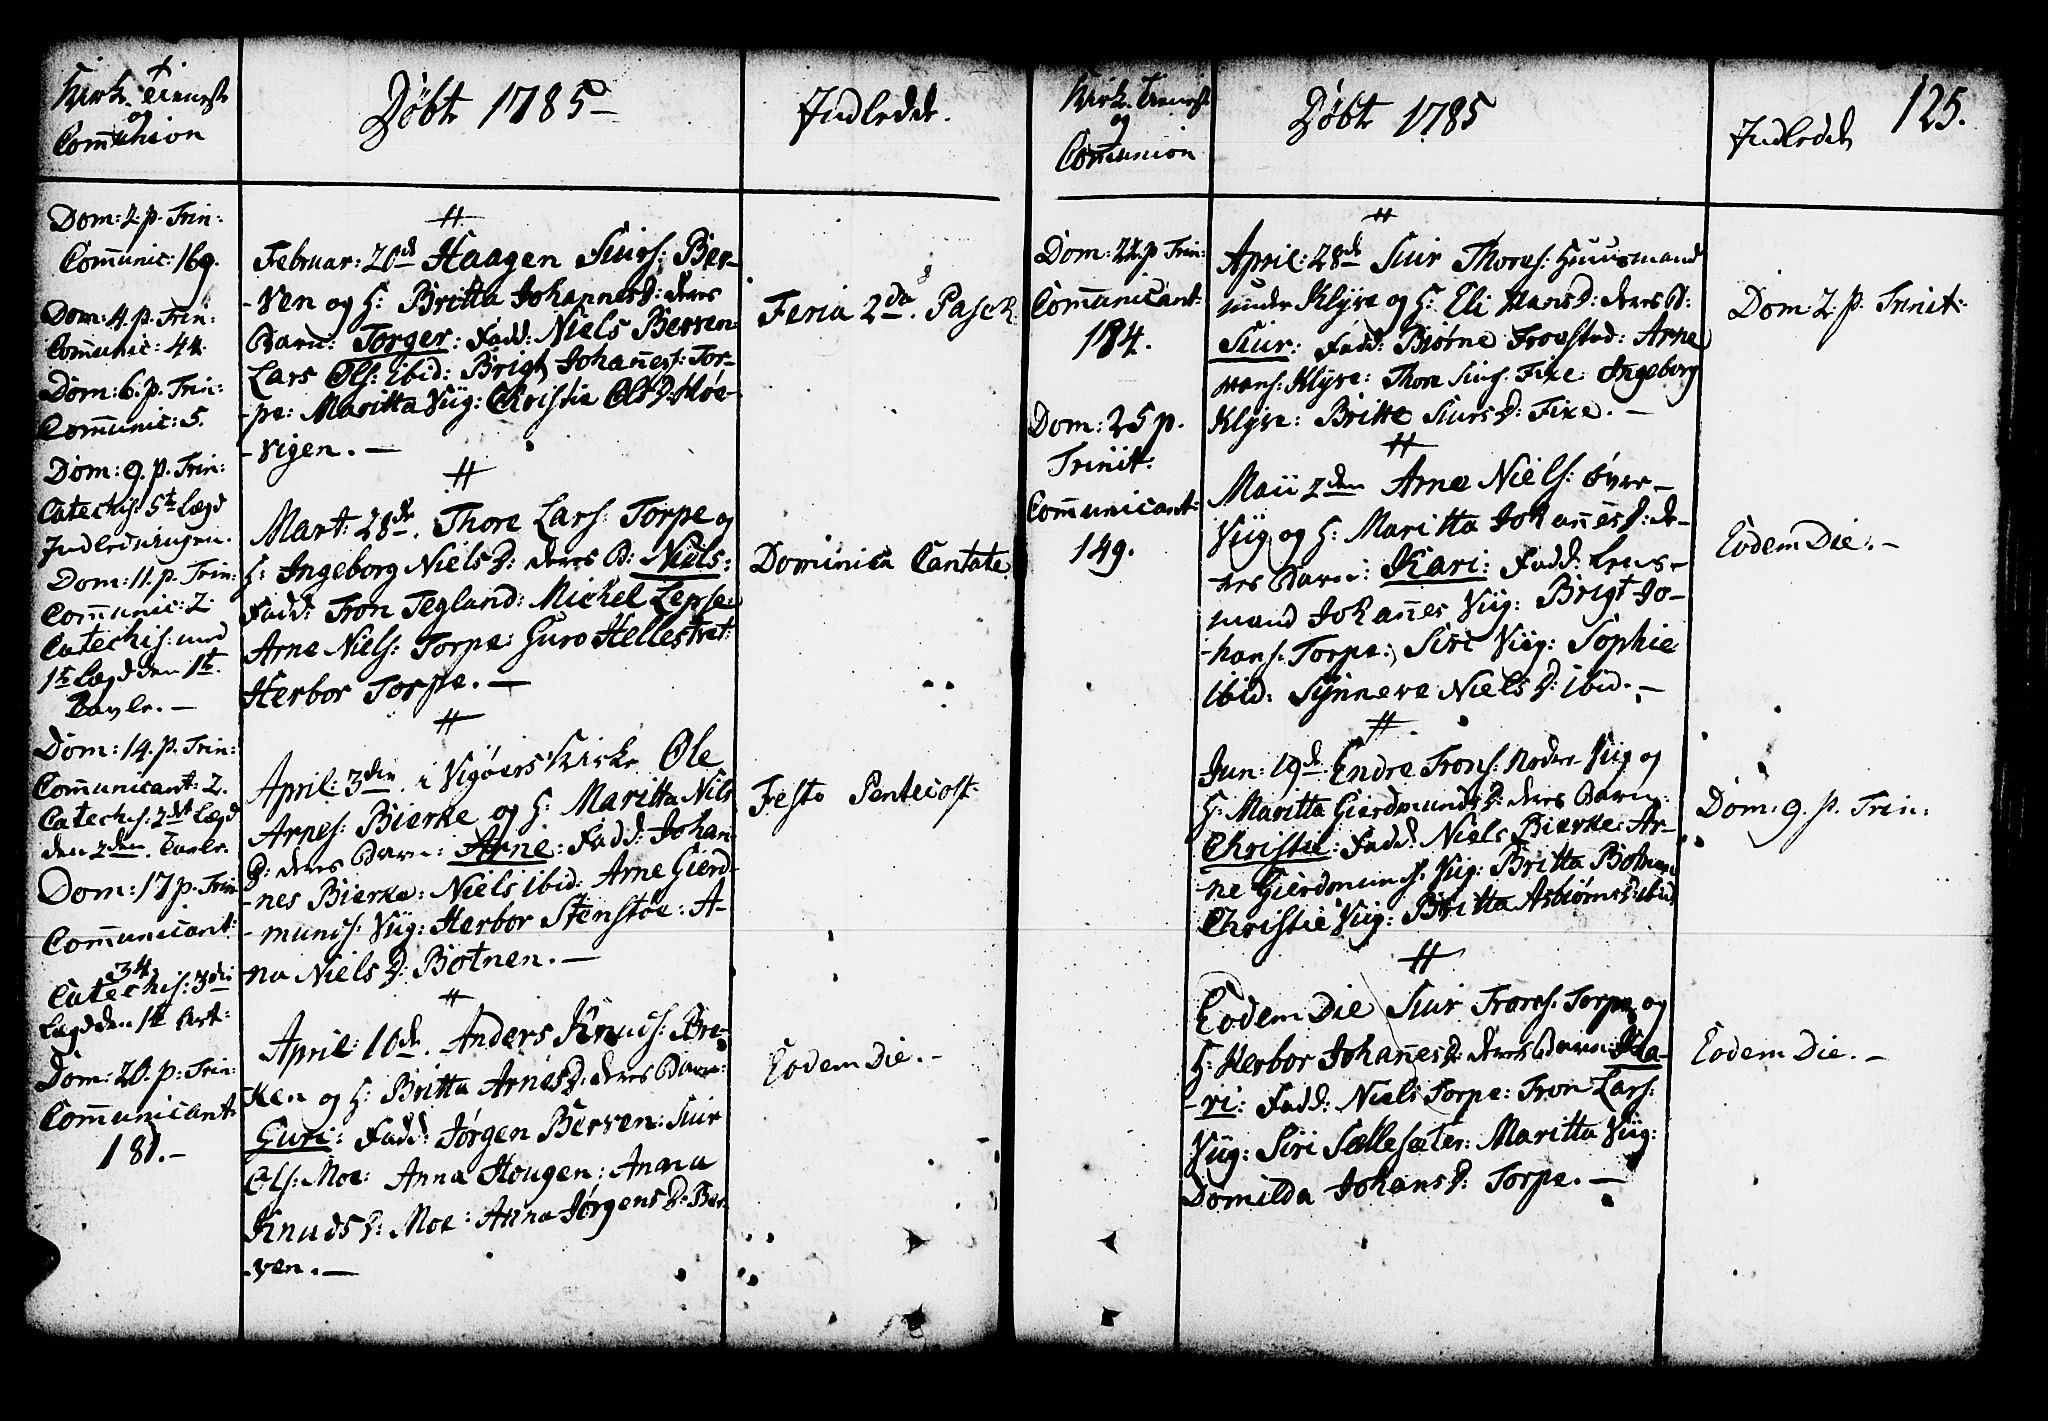 Kirk Tieneste
og
Communion
Døbte 1785-
Jndledde.
Dom: 2. p. Trin:
Com̅unic: 169.
Dom: 4. p. Trin:
Com̅unic: 44.
Dom: 6. p. Trin:
Com̅unic: 5.
Dom: 9. p. Trin:
Catechis: 5te Lægd
Jndledningen.
Dom: 11. p. Trin:
Com̅unic: 2.
Catechis: med
1te Lægd den 1te
Tavle. -
Dom: 14. p. Trin:
Com̅unicant: 2.
Catechis: 2det Lægd
den 2den Tavle.
Dom: 17 p. Trin
Com̅unicant:
34.
Catechis: 3die
Lægd den 1te Art:
Dom: 20. p: Trin:
Com̅unicant
181. -
#
Februar: 20de Haagen Siurs: Ber-
-ven og H: Britta JohannesD: deres
Barn: Torger: Fadd: Niels Berven:
Lars Ols: ibid: Brigt Johan̅es: Tor-
-pe: Maritta Viig: Christie OlsD: Moe-
-vigen. -
#
Mart: 28de. Thore Lars: Torpe og
H: Ingeborg NielsD: deres B: Niels:
Fadd: Tron Tegland: Mickel Lepse:
Arne Niels: Torpe: Guro Hellestvet:
Herbor Torpe. -
#
April: 3die i Vigøers Kirke Ole
Arnes: Bierke og H: Maritta Niels
D: deres Barn: Arne: Fadd: Johan-
-nes Bierke: Niels ibid: Arne Gierd-
-munds: Viig: Herbor Stenstøe: A-
-na NielsD: Botnen. -
#
April: 10de. Anders Knuds: Bra-
-ken og H: Britta ArnesD: deres Barn:
Guri: Fadd: Jørgen Berven: Siur
Ols: Moe: Anna Hougen: Anna
KnudsD: Moe: Anna JørgensD: Ber-
-ven. -
Feria 2da. Pasch.
Dominica Cantate.
Festo Pentecost:
Eodem Die. -
Kirk Tieneste
og
Communion
Døbte 1785
Jndledde
125.
Dom: 22. p. Trin:
Com̅unicant:
184.
Dom: 25 p.
Trinit:
Com̅unicant:
149.
#
April: 28de Siur Thores: Huusmand
under Klyve og H: Eli HansD: deres B:
Siur: Fadd: Biørne Froestad: Arne
Hans: Klyve: Thore Siurs: Fixe: Ingeborg
Klyve: Britte SiursD: Fixe. -
#
Maii 2den Arne Niels: øvre-
Viig og H: Maritta Johan̅esD: de-
-res Barn: Kari: Fadd: Lens-
mand Johan̅es Viig: Brigt Jo-
-hans: Torpe: Siri Viig: Sophie
ibid: Synneve NielsD: ibid. -
#
Jun: 19de Endre Trons: Neder-Viig og
H: Maritta GierdmundsD: deres Barn:
Christie: Fadd: Niels Bierke: Ar-
-ne Gierdmunds: Viig: Britta Botnen:
Christie Viig: Britta AsbiørnsD: ibid
#
Eodem Die Siur Trons: Torpe og
H: Herbor Johan̅esD: deres Barn: Ka-
-ri: Fadd: Niels Torpe: Tron Lars:
Viig: Siri Sællesæter: Maritta Viig:
Domilda JohansD: Torpe. -
Dom: 2. p. Trinit:
Eodem Die. -
Dom: 9. p. Trin:
Eodem Die. -